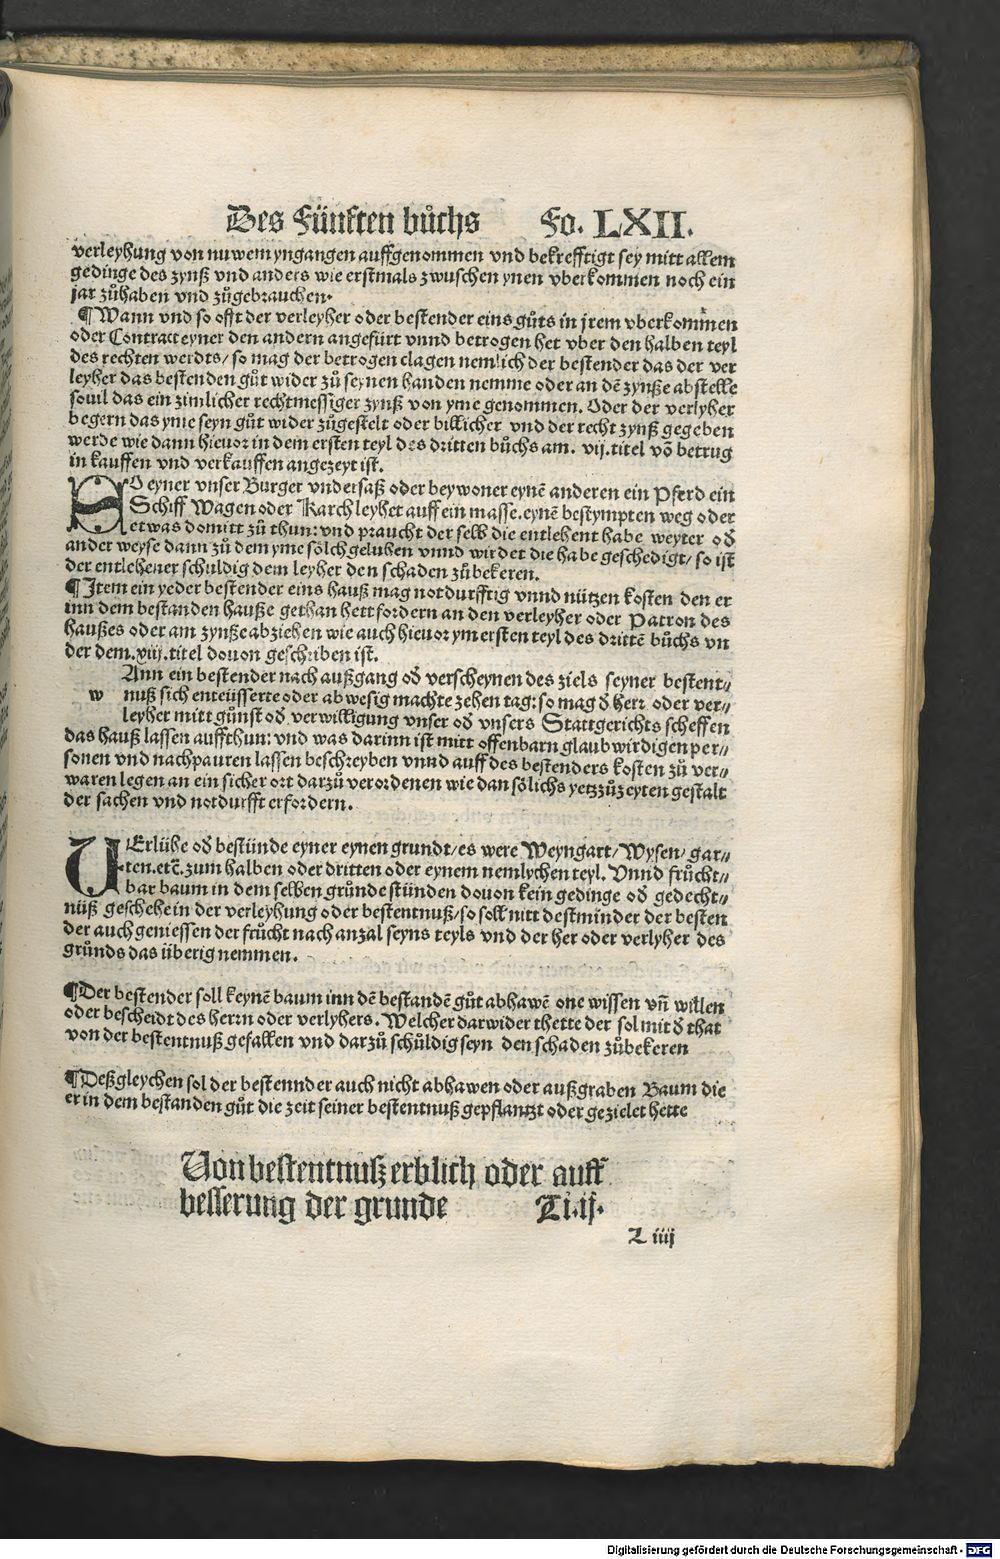 Des Fünften bůchs Fo. LXII.
verleyhung von nuwem yngangen auffgenommen vnd bekrefftigt sey mitt allem
gedinge des zynß vnd anders wie erstmals zwuschen ynen vberkommen noch ein
jar zůhaben vnd zůgebrauchen.
¶ Wann vnd so offt der verleyher oder bestender eins gůts in jrem vberkommen
oder Contract eyner den andern angefürt vnnd betrogen het vber den halben teyl
des rechten werdts/ so mag der betrogen clagen nemlich der bestender das der ver
leyher das bestenden gůt wider zů seynen handen nemme oder an dē zynße abstelle
souil das ein zimlicher rechtmessiger zynß von yme genommen. Oder der verlyher
begern das yme seyn gůt wider zůgestelt oder billicher vnd der recht zynß gegeben
werde wie dann hieuor in dem ersten teyl des dritten bůchs am. vij. titel vō betrug
in kauffen vnd verkauffen angezeyt ist.
SO eyner vnser Burger vndersaß oder beywoner eynē anderen ein Pferd ein
Schiff Wagen oder Karch leyhet auff ein masse. eynē bestympten weg oder
etwas domitt zů thun: vnd praucht der selb die entlehent habe weyter od̄
ander weyse dann zů dem yme sölch geluhen vnnd wirdet die habe geschedigt/ so ist
der entlehener schuldig dem leyher den schaden zůbekeren.
¶ Item ein yeder bestender eins hauß mag notdurfftig vnnd nützen kosten den er
inn dem bestanden hauße gethan hett fordern an den verleyher oder Patron des
haußes oder am zynße abziehen wie auch hieuor ym ersten teyl des drittē bůchs vn
der dem. xiij. titel douon geschriben ist.
w Ann ein bestender nach außgang od̄ verscheynen des ziels seyner bestent⸗
nuß sich enteüsserte oder abwesig machte zehen tag: so mag d̄ herr oder ver⸗
leyher mitt gůnst od̄ verwilligung vnser od̄ vnsers Stattgerichts scheffen
das hauß lassen auffthun: vnd was darinn ist mitt offenbarn glaubwirdigen per⸗
sonen vnd nachpauren lassen beschreyben vnnd auff des bestenders kosten zů ver⸗
waren legen an ein sicher ort darzů verordenen wie dan sölichs yetzzůzeyten gestalt
der sachen vnd notdurfft erfordern.
VErlühe od̄ bestünde eyner eynen grundt/ es were Weyngart/ Wysen/ gar⸗
ten. etc̄. zum halben oder dritten oder eynem nemlychen teyl. Vnnd frücht⸗
bar baum in dem selben gründe stünden douon kein gedinge od̄ gedecht⸗
nüß geschehe in der verleyhung oder bestentnuß/ so soll nitt destminder der besten
der auch geniessen der frücht nach anzal seyns teyls vnd der her oder verlyher des
gründs das überig nemmen.
¶ Der bestender soll keynē baum inn dē bestandē gůt abhawē one wissen vn̄ willen
oder bescheidt des herrn oder verlyhers. Welcher darwider thette der sol mit d̄ that
von der bestentnuß gefallen vnd darzů schüldig seyn den schaden zůbekeren
¶ Deßgleychen sol der bestennder auch nicht abhawen oder außgraben Baum die
er in dem bestanden gůt die zeit seiner bestentnuß gepflantzt oder gezielet hette
Von bestentnuß erblich oder auff
besserung der grunde Ti. ij.
L iiij
Digitalisierung gefördert durch die Deutsche Forschungsgemeinschaft - DFG